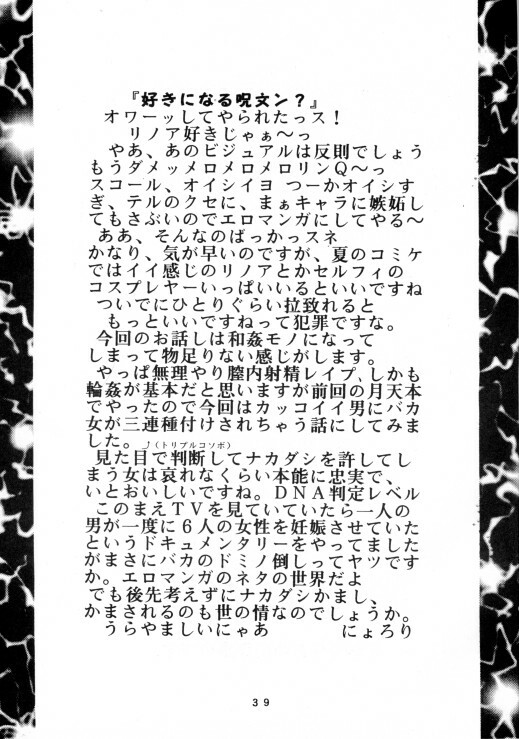 『好きになる呪文ン？』
オワーッしてやられたっス！
リノア好きじゃぁ～っ
やあ、あのビジュアルは反則でしょう
もうダメッメロメロメロリンＱ～っ
スコール、オイシイヨ つーかオイシす
ぎ、テルのクセに、まぁキャラに嫉妬し
てもさぶいのでエロマンガにしてやる～
ああ、そんなのばっかっスネ
かなり、気が早いのですが、夏のコミケ
ではイイ感じのリノアとかセルフィの
コスプレヤーいっぱいいるといいですね
ついでにひとりぐらい拉致れると
もっといいですねって犯罪ですな。
今回のお話しは和姦モノになって
しまって物足りない感じがします。
やっぱ無理やり膣内射精レイプ、しかも
輪姦が基本だと思いますが前回の月天本
でやったので今回はカッコイイ男にバカ
女が三連種付けされちゃう話にしてみま
した。 ⤴（トリプルコソボ）
見た目で判断してナカダシを許してし
まう女は哀れなくらい本能に忠実で、
いとおいしいですね。ＤＮＡ判定レベル
このまえＴＶを見ていていたら一人の
男が一度に６人の女性を妊娠させていた
というドキュメンタリーをやってました
がまさにバカのドミノ倒しってヤツです
か。エロマンガのネタの世界だよ
でも後先考えずにナカダシかまし、
かまされるのも世の情なのでしょうか。
うらやましいにゃあ　　　にょろり
３９